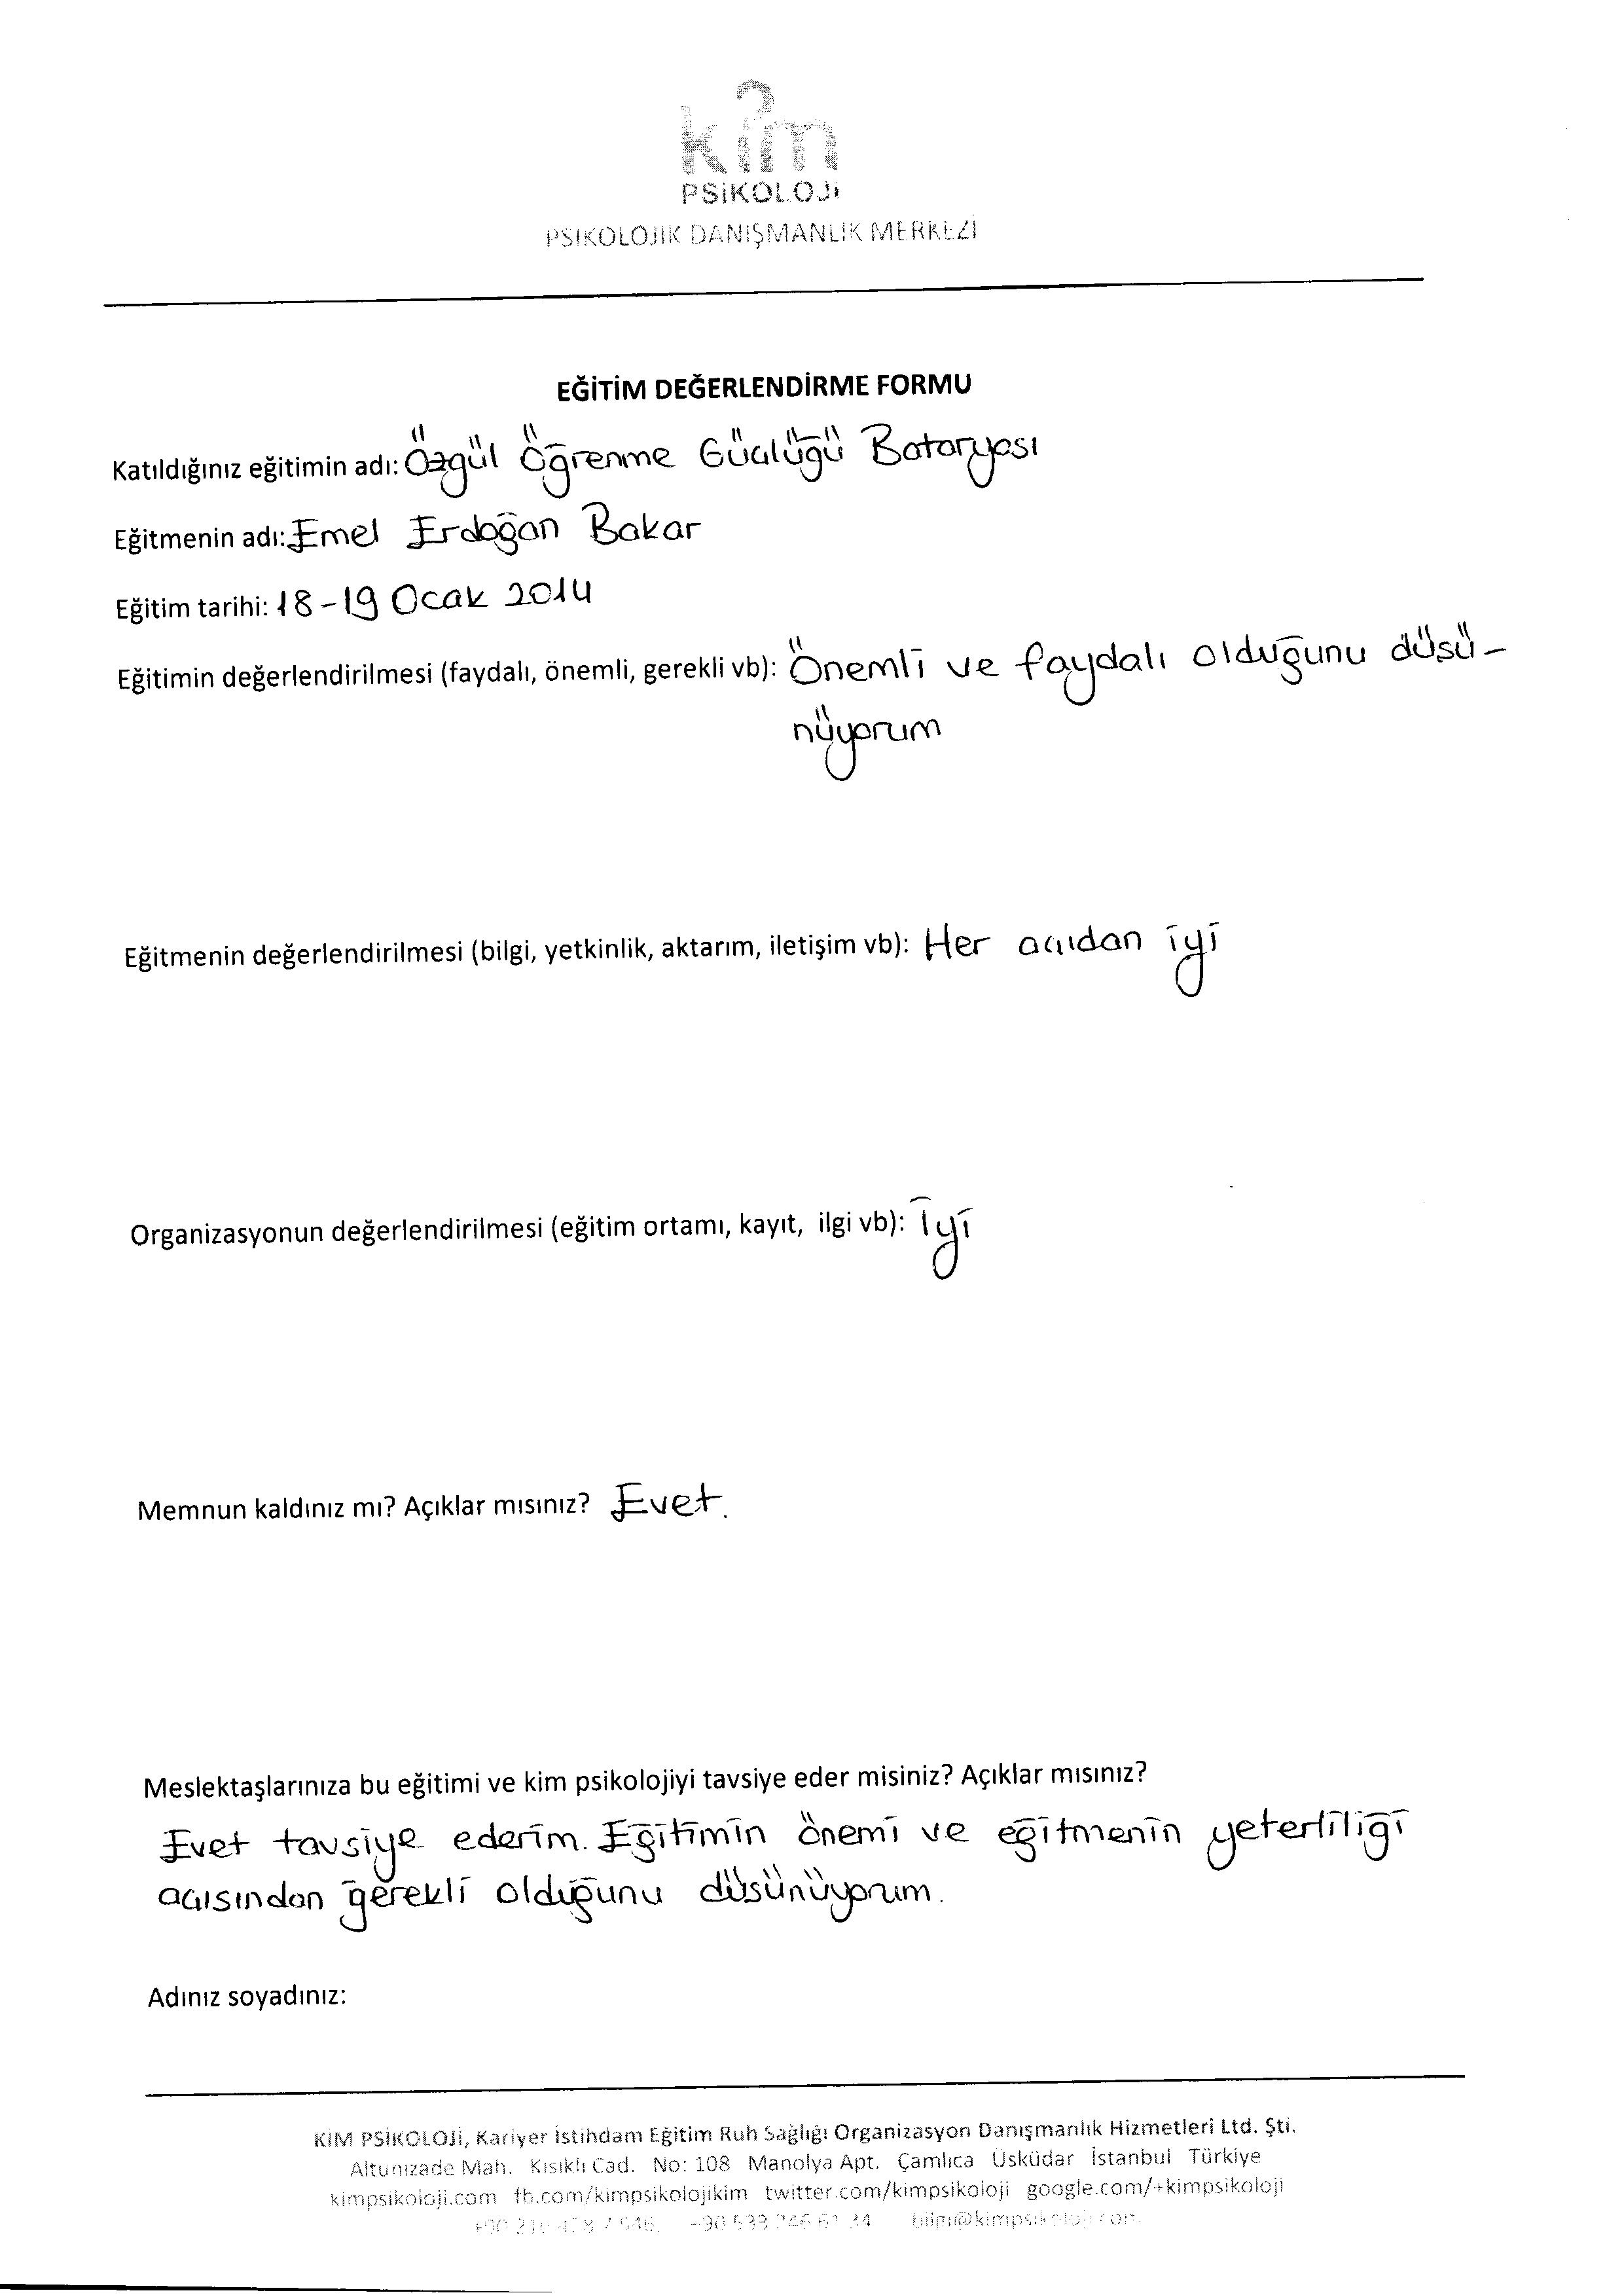 kim
PSİKOLOJİ
PSİKOLOJİK DANIŞMANLIK MERKEZİ
EĞİTİM DEĞERLENDİRME FORMU
Katıldığınız eğitimin adı: Özgül Öğrenme Güclüğü Bataryası
Eğitmenin adı: Emel Erdoğan Bakar
Eğitim tarihi: 18-19 Ocak 2014
Eğitimin değerlendirilmesi (faydalı, önemli, gerekli vb): Önemli ve faydalı olduğunu düsü-
nüyorum
Eğitmenin değerlendirilmesi (bilgi, yetkinlik, aktarım, iletişim vb): Her acıdan iyi
Organizasyonun değerlendirilmesi (eğitim ortamı, kayıt, ilgi vb): İyi
Memnun kaldınız mı? Açıklar mısınız? Evet.
Meslektaşlarınıza bu eğitimi ve kim psikolojiyi tavsiye eder misiniz? Açıklar mısınız?
Evet tavsiye ederim. Eğitimin önemi ve eğitmenin yeterliliği
acısından gerekli olduğunu düsünüyorum.
Adınız soyadınız:
KİM PSİKOLOJİ, Kariyer İstihdam Eğitim Ruh Sağlığı Organizasyon Danışmanlık Hizmetleri Ltd. Şti.
Altunizade Mah. Kısıklı Cad. No: 108 Manolya Apt. Çamlıca Üsküdar İstanbul Türkiye
kimpsikoloji.com fb.com/kimpsikolojikim twitter.com/kimpsikoloji google.com/+kimpsikoloji
bilgi@kimpsikoloji.com